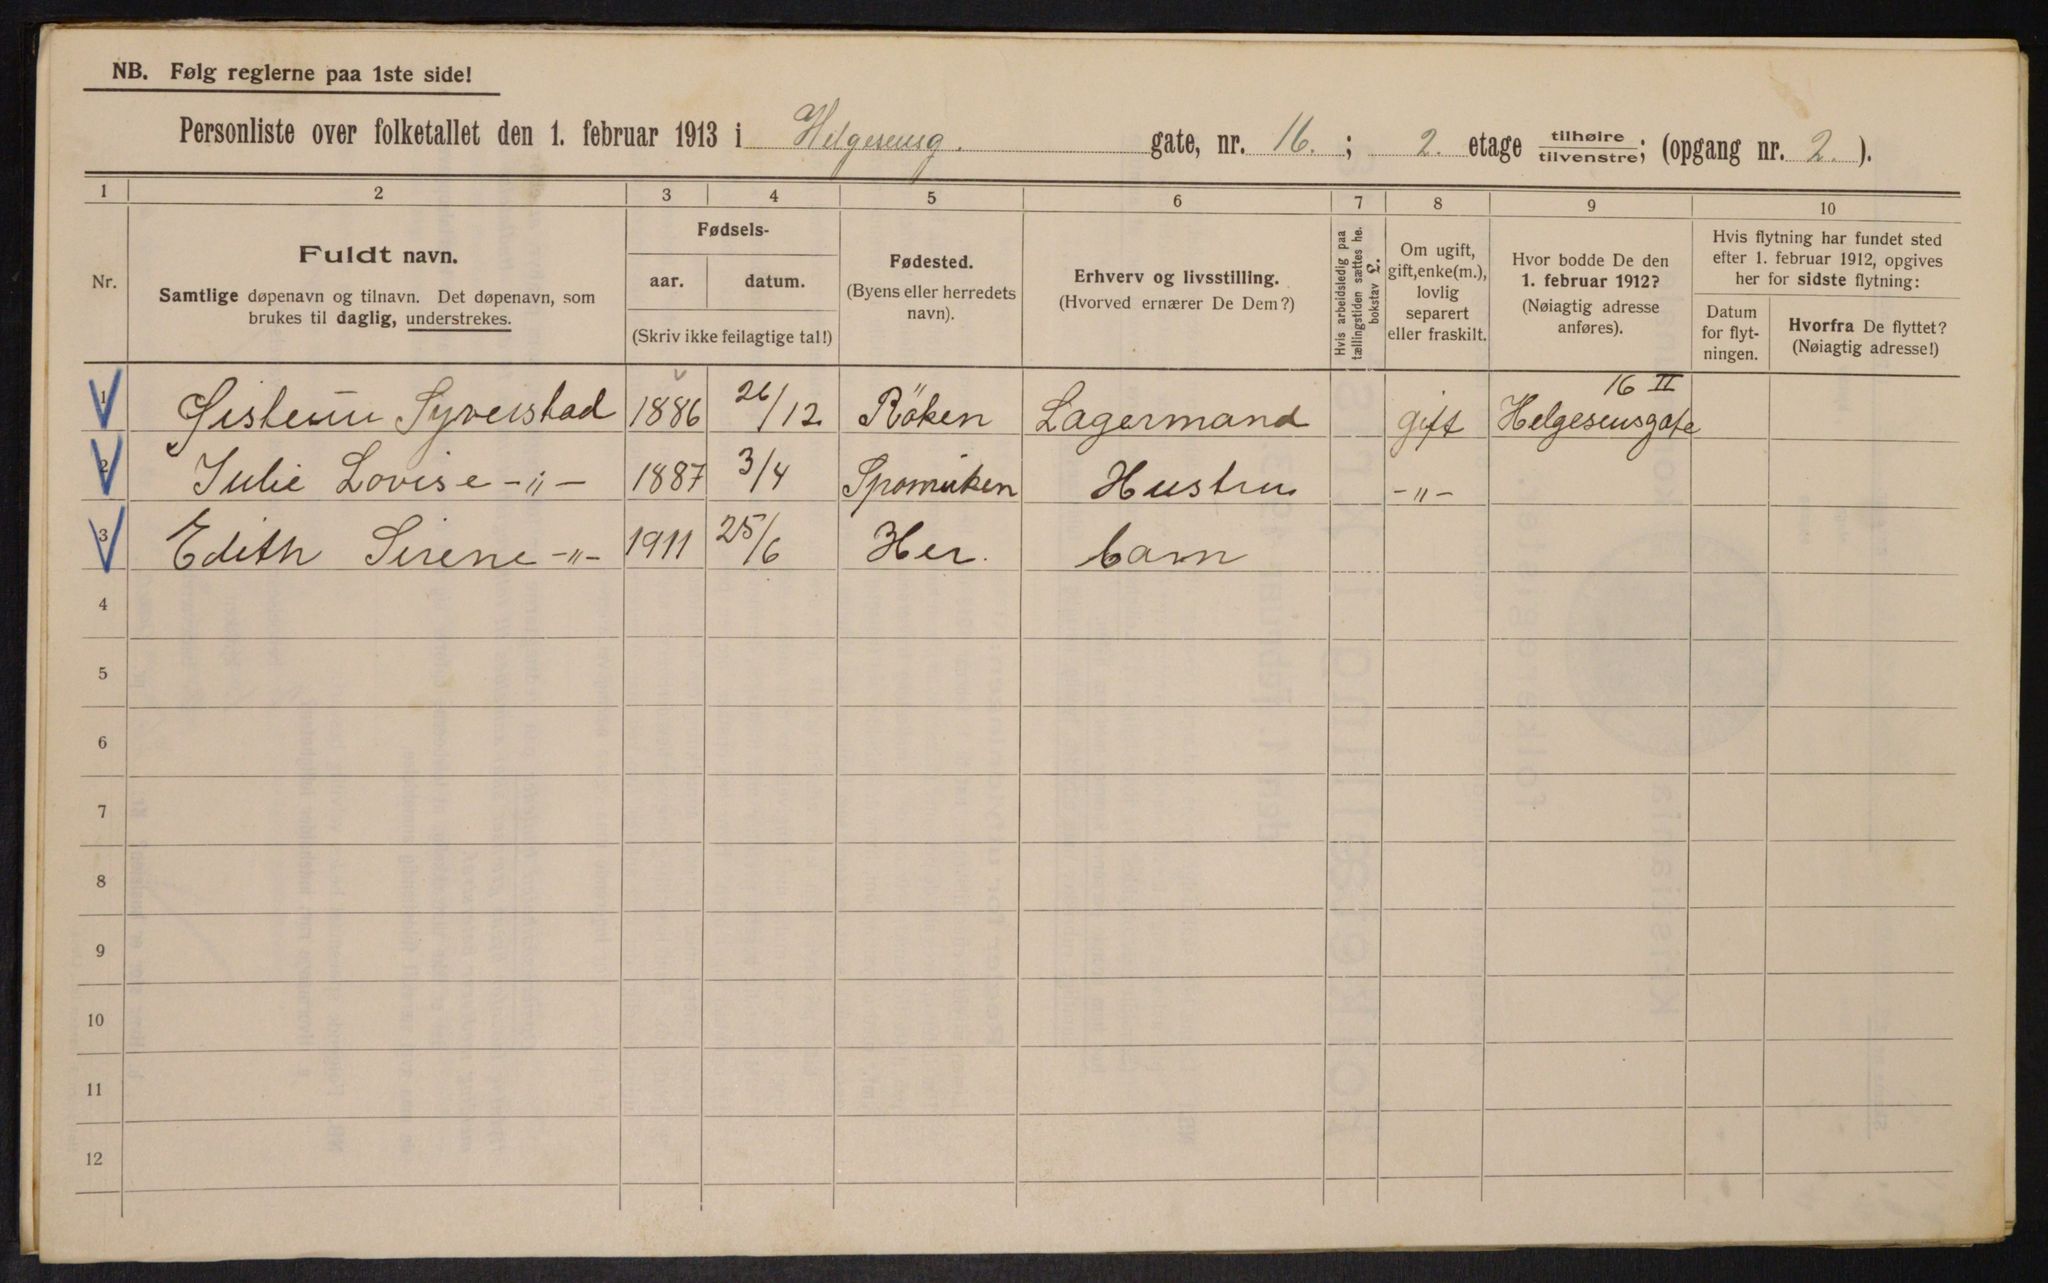 NB. Følg reglerne paa 1ste side!
Personliste over folketallet den 1. februar 1913 i Helgesensg. gate, nr. 16. ; 2. etage tilhøire/tilvenstre; (opgang nr. 2. ).
1 2 3 4 5 6 7 8 9 10
Nr.
Fuldt navn.
Samtlige døpenavn og tilnavn. Det døpenavn, som
brukes til daglig, understrekes.
Fødsels-
aar. datum.
(Skriv ikke feilagtige tal!)
Fødested.
(Byens eller herredets
navn).
Erhverv og livsstilling.
(Hvorved ernærer De Dem?)
Hvis arbeidsledig paa
tællingstiden sættes he.
bokstav L.
Om ugift,
gift, enke(m.),
lovlig
separert
eller fraskilt.
Hvor bodde De den
1. februar 1912?
(Nøiagtig adresse
anføres).
Hvis flytning har fundet sted
efter 1. februar 1912, opgives
her for sidste flytning:
Datum
for flyt-
ningen.
Hvorfra De flyttet?
(Nøiagtig adresse!)
1 Syverstad 1886 26/12 Röken Lagermand gift 16 II Helgesensgate
2 Julie Lovise -„- 1887 3/4 Hustru -„-
3 Edith Sirene -„- 1911 25/6 Her. barn
4
5
6
7
8
9
10
11
12